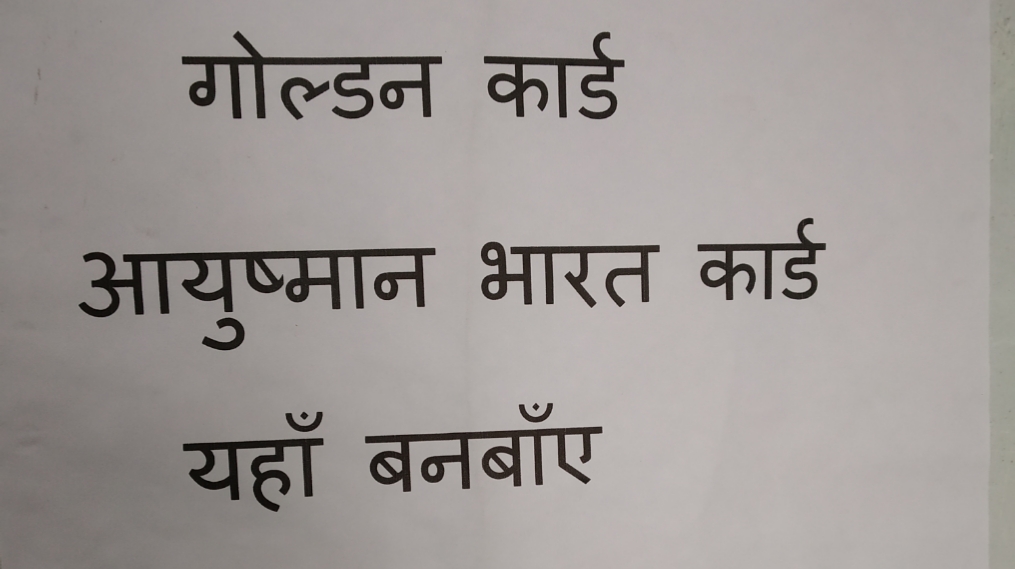 गोल्डन कार्ड
आयुष्मान भारत कार्ड
यहाँ बनबाँए